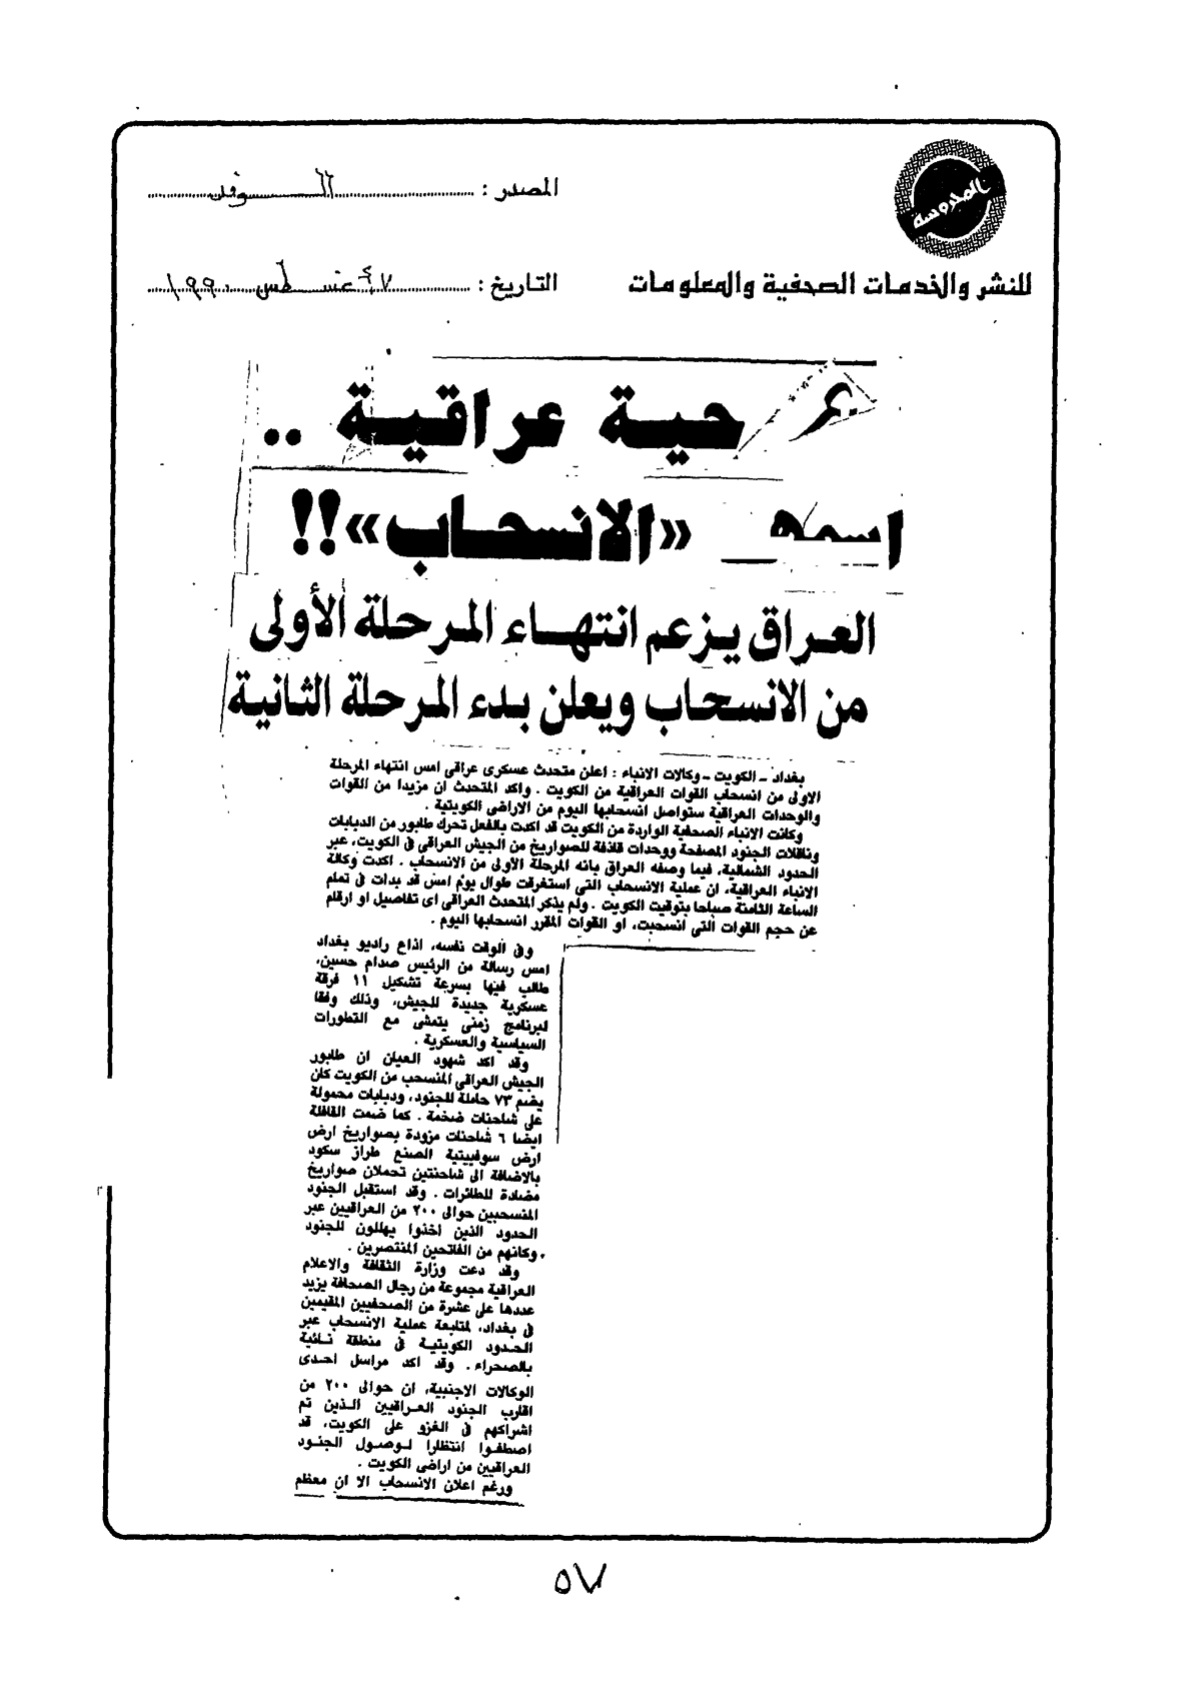 المحروسة
للنشر والخدمات الصحفية والمعلومات
المصدر : الوفد
التاريخ : ٧ أغسطس ١٩٩٠
حية عراقية ..
«الانسحاب»!!
العراق يزعم انتهاء المرحلة الأولى
من الانسحاب ويعلن بدء المرحلة الثانية
بغداد ـ الكويت ـ وكالات الانباء : اعلن متحدث عسكرى عراقى امس انتهاء المرحلة
الاولى من انسحاب القوات العراقية من الكويت . واكد المتحدث ان مزيدا من القوات
والوحدات العراقية ستواصل انسحابها اليوم من الاراضى الكويتية .
وكانت الانباء الصحفية الواردة من الكويت قد اكدت بالفعل تحرك طابور من الدبابات
وناقلات الجنود المصفحة ووحدات قاذفة للصواريخ من الجيش العراقى فى الكويت، عبر
الحدود الشمالية، فيما وصفه العراق بانه المرحلة الأولى من الانسحاب . اكدت وكالة
الانباء العراقية، ان عملية الانسحاب التى استغرقت طوال يوم امس قد بدات فى تمام
الساعة الثامنة صباحا بتوقيت الكويت . ولم يذكر المتحدث العراقى اى تفاصيل او ارقام
عن حجم القوات التى انسحبت، او القوات المقرر انسحابها اليوم .
وفى الوقت نفسه، اذاع راديو بغداد
امس رسالة من الرئيس صدام حسين،
طالب فيها بسرعة تشكيل ١١ فرقة
عسكرية جديدة للجيش، وذلك وفقا
لبرنامج زمنى يتمشى مع التطورات
السياسية والعسكرية .
وقد اكد شهود العيان ان طابور
الجيش العراقى المنسحب من الكويت كان
يضم ٧٣ حاملة للجنود، ودبابات محمولة
على شاحنات ضخمة . كما ضمت القافلة
ايضا ٦ شاحنات مزودة بصواريخ ارض
ارض سوفييتية الصنع طراز سكود
بالاضافة الى شاحنتين تحملان صواريخ
مضادة للطائرات . وقد استقبل الجنود
المنسحبين حوالى ٢٠٠ من العراقيين عبر
الحدود الذين اخذوا يهللون للجنود
وكانهم من الفاتحين المنتصرين .
وقد دعت وزارة الثقافة والاعلام
العراقية مجموعة من رجال الصحافة يزيد
عددها على عشرة من الصحفيين المقيمين
فى بغداد، لمتابعة عملية الانسحاب عبر
الحدود الكويتية فى منطقة نائية
بالصحراء . وقد اكد مراسل احدى
الوكالات الاجنبية، ان حوالى ٢٠٠ من
اقارب الجنود العراقيين الذين تم
اشراكهم فى الغزو على الكويت، قد
اصطفوا انتظارا لوصول الجنود
العراقيين من اراضى الكويت .
ورغم اعلان الانسحاب الا ان معظم
٥٧